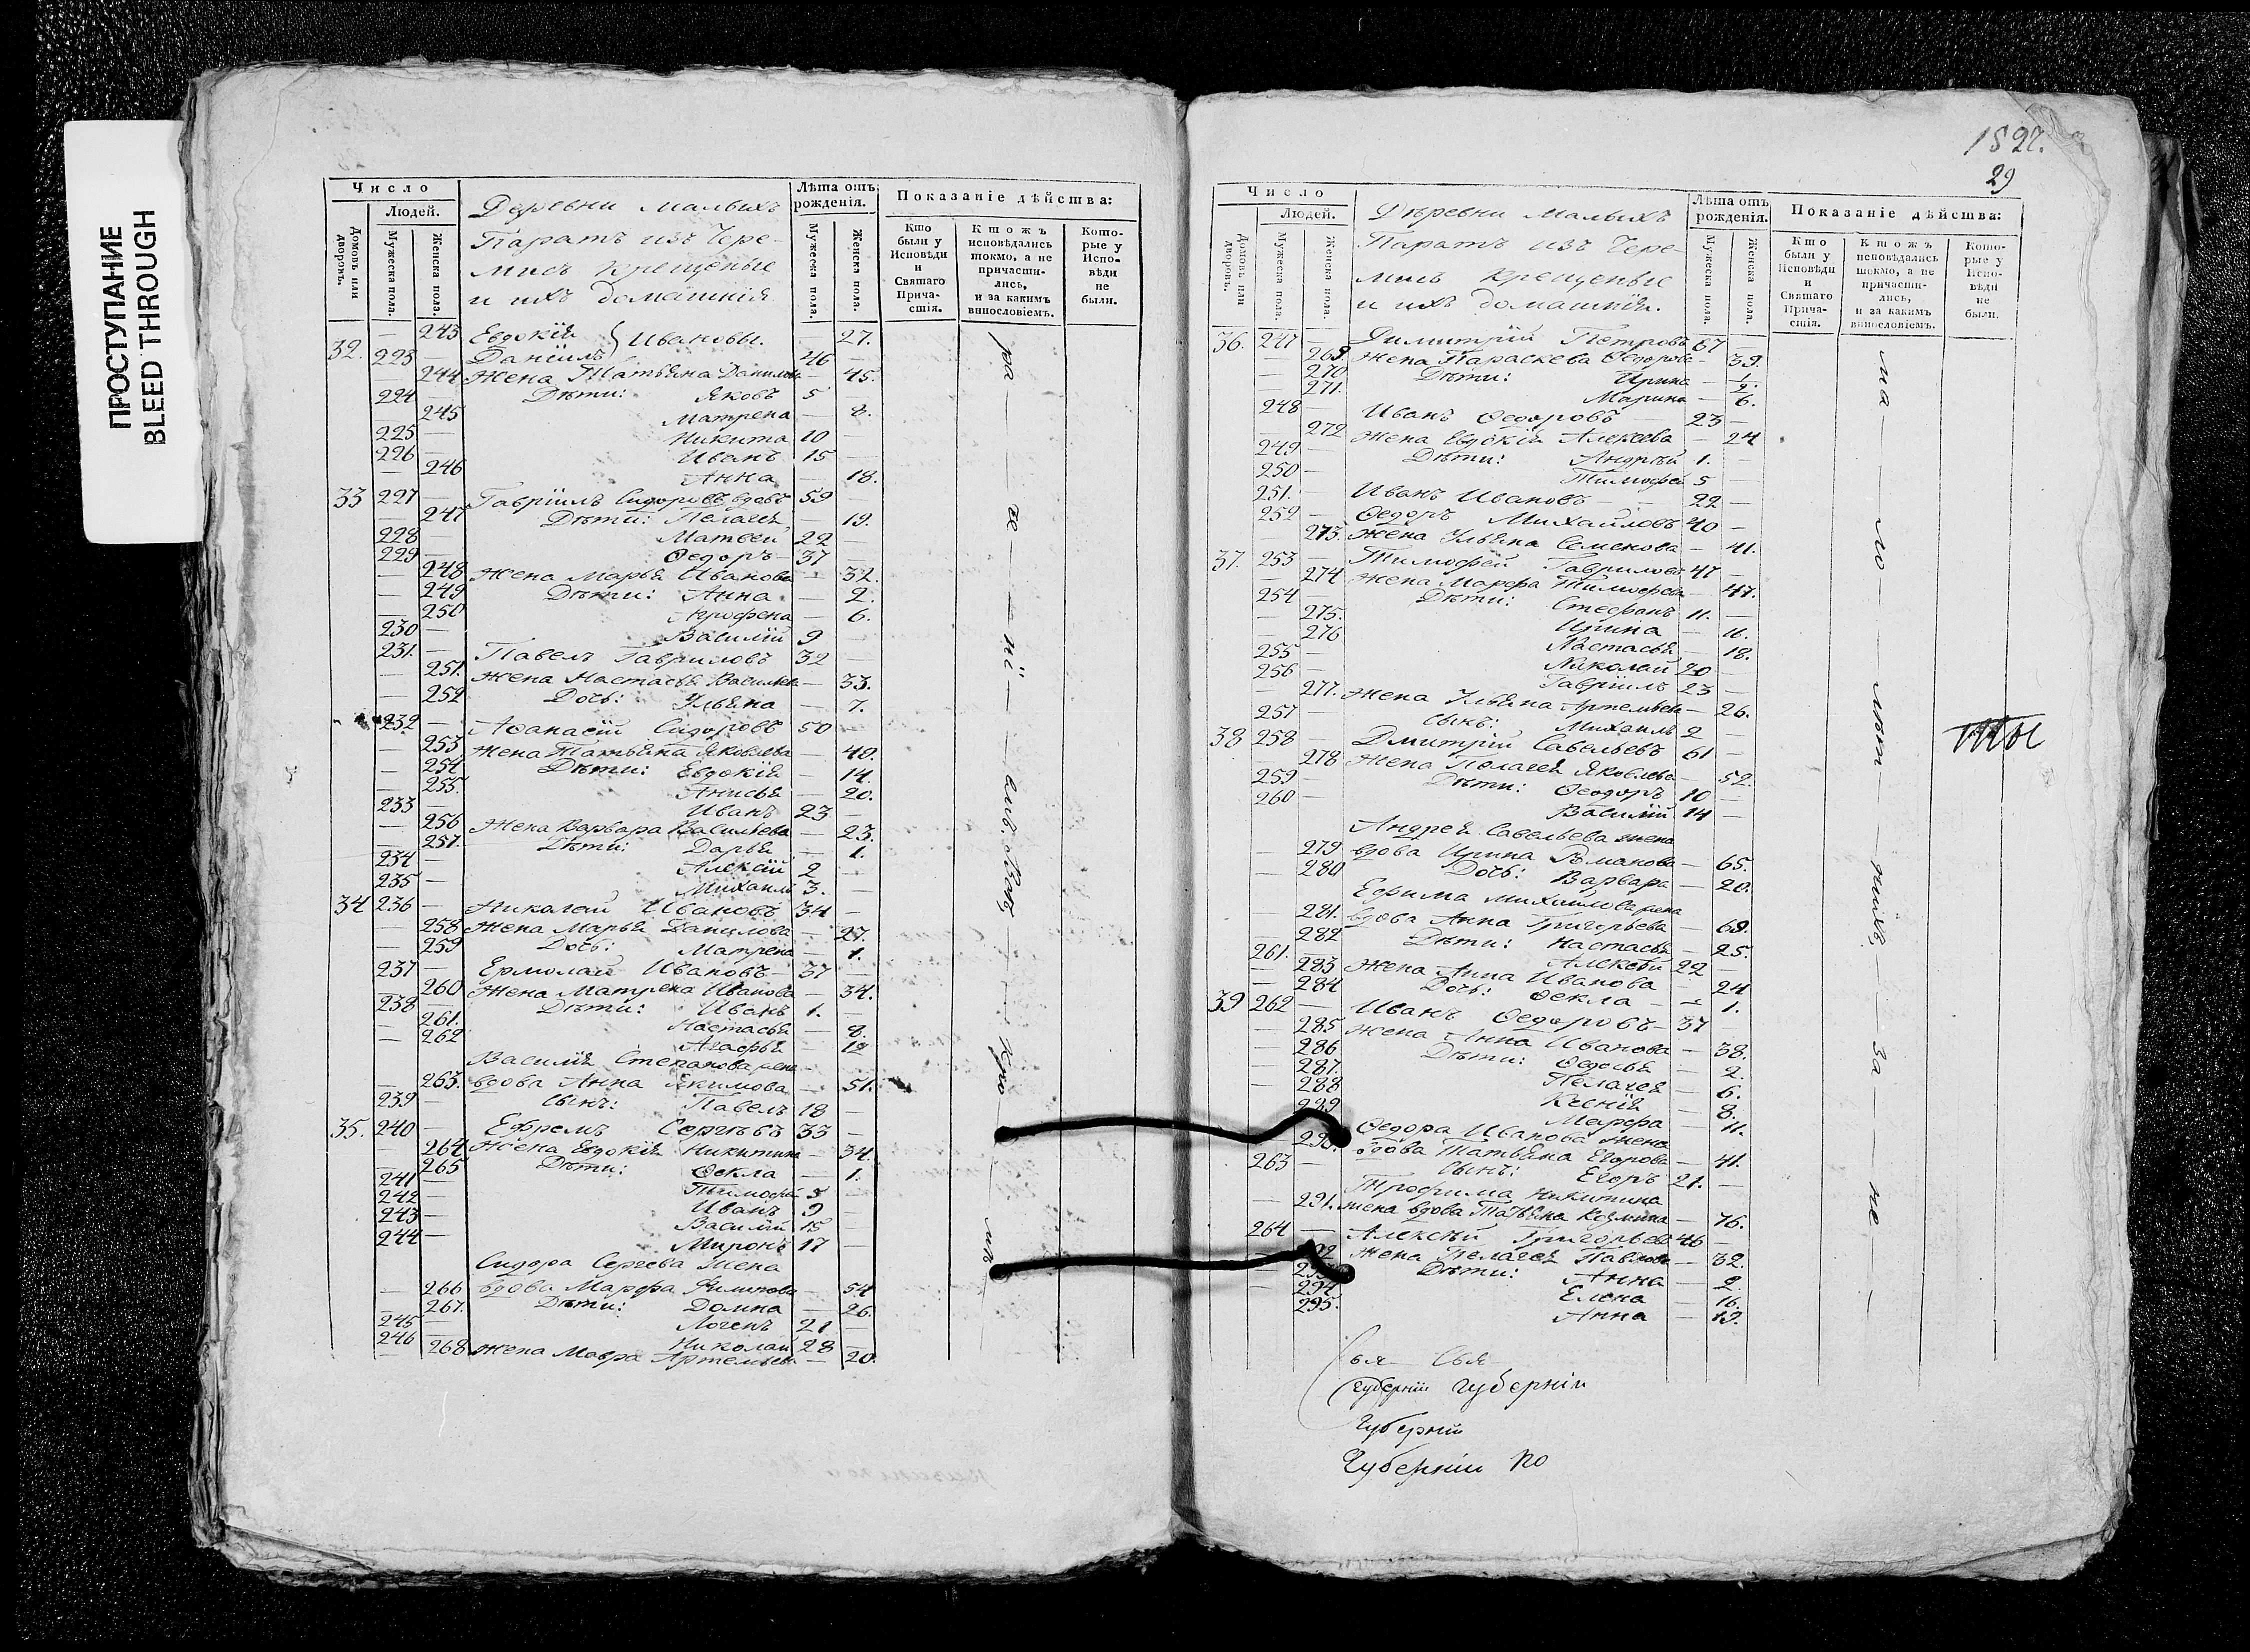 ПРОСТУПАНИЕ
BLEED THROUGH
Число
Людей.
Домовъ или дворовъ.
Мужеска пола.
Женска пола.
Деревни Малыхъ
Паратъ изъ Чере-
мисъ крещеные
и ихъ домашнія
Лѣта отъ рожденія.
Мужеска пола.
Женска пола.
Показаніе дѣйства:
Кто были у Исповѣди и Святаго Причастія.
Ктожъ исповѣдались токмо, а не причастились, и за какимъ винословіемъ.
Которые у Исповѣди не были.
— 243 Евдокія } Ивановы. — 27.
32. 223 — Даніилъ 46 —
— 244 Жена Татьяна Данилова — 45.
224 — Дѣти: Яковъ 5 —
— 245 Матрена — 8.
225 — Никита 10 —
226 — Иванъ 15 —
— 246 Анна — 18.
33 227 — Гавріилъ Сидоровъ вдовъ 59 —
— 247 Дѣти: Пелагея — 19.
228 — Матвей 22 —
229 — Ѳедоръ 37
— 248 Жена Марья Иванова — 32.
— 249 Дѣти: Анна — 2.
— 250 — 6.
230 — Василій 9 —
231. — Павелъ Гавриловъ 32 —
— 251. Жена Настасья Васильева — 33.
— 252 Дочь: Ульяна — 7.
232 — Аѳанасій Сидоровъ 50 —
— 253 Жена Татьяна Яковлева — 40.
— 254 Дѣти: Евдокія — 14.
— 255. Анисья — 20.
233 — Иванъ 23 —
— 256 Жена Варвара Васильева — 23.
— 257. Дѣти: Дарья — 1.
234 — Алексій 2 —
235 — Михаилъ 3. —
34 236 — Николай Ивановъ 34 —
— 258 Жена Марья Данилова — 27.
— 259 Дочь: Матрена — 1.
237 — Ермолай Ивановъ 37 —
— 260 Жена Матрена Иванова — 34.
238 — Дѣти: Иванъ 1. —
— 261. Настасья — 8.
— 262 Агафья — 12
Василія Степанова жена
— 263. вдова Анна Якимова — 51.
239 — Сынъ: Павелъ 18 —
35. 240 — Ефремъ Сергѣевъ 33 —
— 264 Жена Евдокія Никитина — 34.
— 265 Дѣти: Ѳекла — 1.
241 — Тимофей 5 —
242 — Иванъ 9 —
243 — Василій 15 —
244 — Миронъ 17 —
Сидора Сергева жена
— 266 вдова Марфа — 54
— 267. Дѣти: Домна — 26.
245 — Логенъ 21 —
246 — Николай 28 —
— 268 Жена Мавра Артемьева — 20.
1827.
29
Число
Людей.
Домовъ или дворовъ.
Мужеска пола.
Женска пола.
Деревни Малыхъ
Паратъ изъ Чере-
мисъ крещеные
и ихъ домашнія.
Лѣта отъ рожденія.
Мужеска пола.
Женска пола.
Показаніе дѣйства:
Кто были у Исповѣди и Святаго Причастія.
Ктожъ исповѣдались токмо, а не причастились, и за какимъ винословіемъ.
Которые у Исповѣди не были.
36. 247 — Димитрій Петровъ 67 —
— 269. Жена Параскева Ѳедорова — 39.
— 270 Дѣти: Ирина —
— 271. Марина — 6.
248 — Иванъ Ѳедоровъ 23 —
— 272 Жена Евдокія Алексеева — 24
249 — Дѣти: Андрѣй 1. —
250 — Тимофей 5 —
251. — Иванъ Ивановъ — 22 —
252 — Ѳедоръ Михайловъ 40 —
— 273. Жена Ульяна Семенова — 41.
37. 253 — Тимофей Гавриловъ 47 —
— 274 Жена Марфа Тимофеева — 47.
254 — Дѣти: Стефанъ 11. —
— 275. Ирина — 16.
— 276 Настасья — 18.
255 — Николай 20 —
256 — Гавріилъ 23 —
— 277. Жена Ульяна Артемьева — 26.
257 — Сынъ: Михаилъ 2 —
38 258 — Дмитрій Савельевъ 61 —
— 278 Жена Пелагея Яковлева — 52.
259 — Дѣти: Ѳеодоръ 10 —
260 — Василій 14 —
Андрея Савельева жена
— 279 вдова Ирина Романова — 65.
— 280 Дочь: Варвара — 20.
Ефима Михаилова жена
— 281. вдова Анна Григорьева — 69.
— 282 Дѣти: Настасья — 25.
261. — Алексѣй 22 —
— 283 Жена Анна Иванова — 24
— 284 Дочь: Ѳекла — 1.
39 262 — Иванъ Ѳедоровъ 37 —
— 285 Жена Анна Иванова — 38.
— 286 Дѣти: Ѳедосья — 2.
— 287. Пелагея — 6.
— 288 Ксенія — 8.
— 289 Марфа — 11.
Ѳедора Иванова жена
— 290. вдова Татьяна Егорова — 41.
263 — Сынъ: Егоръ 21. —
Трофима Никитина
— 291. жена вдова Татьяна Козмина — 76.
264 — Алексѣй Григорьевъ 46 —
— 292 Жена Пелагея Павлова — 32.
— 293 Дѣти: Анна — 2.
— 294 Елена — 16.
— 295. Анна — 19.
ты
Губерніи губерніи
Губерніи
Губерніи по